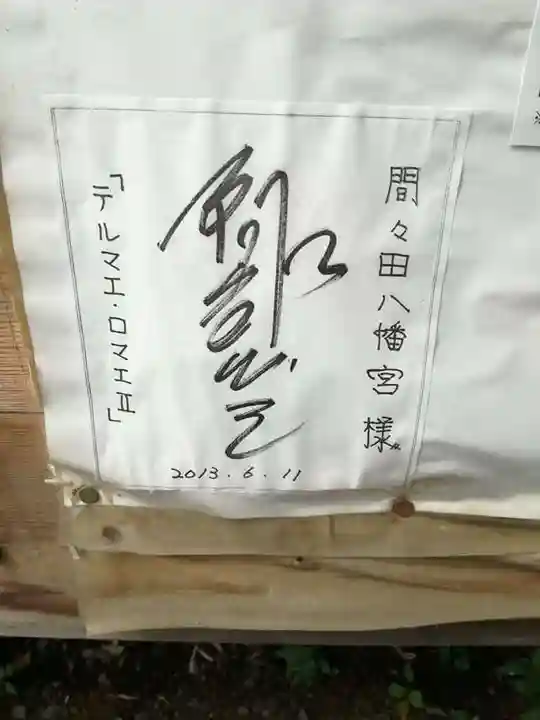 間々田八幡宮様
「テルマエ・ロマエⅡ」
2013.6.11